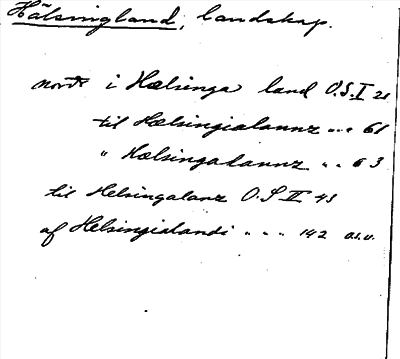 Hälsingland, landskap.
nordr i Hælsinga land O.S. I 21
til Hælsingialannz " " 61
" Hælsingalannz " " 63
til Helsingalanz O.S II 43
af Helsingialandi " " " 142 o.s.v.